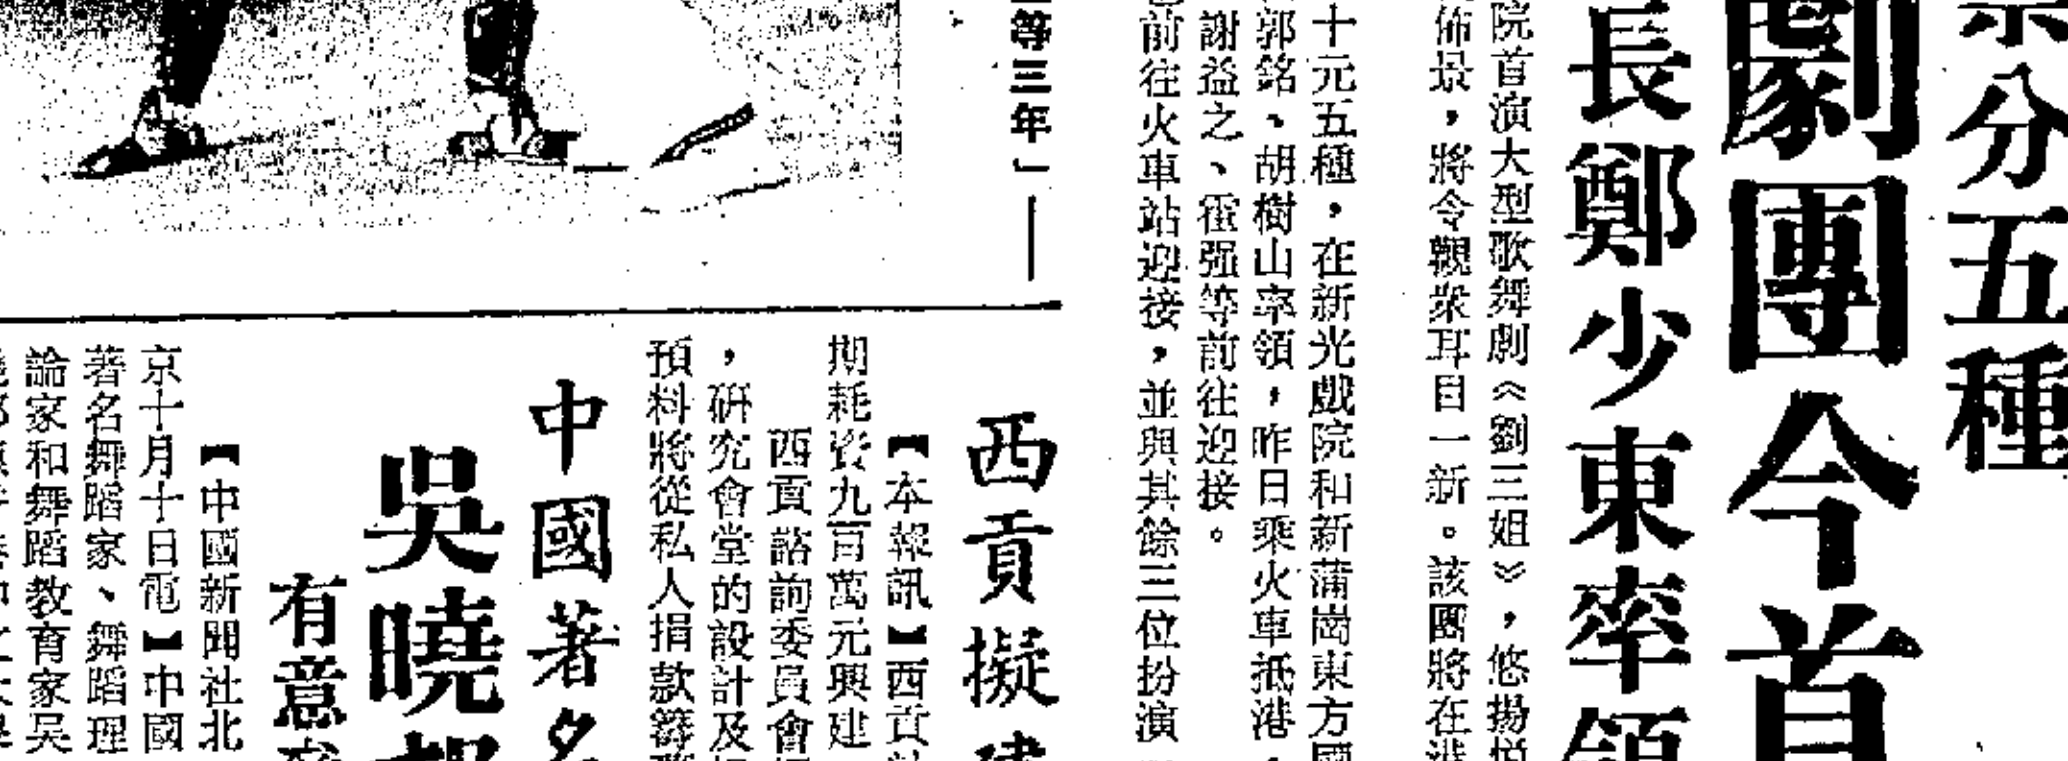 分五種
劇團今首
長鄭少東率領
院首演大型歌舞劇《劉三姐》，悠揚悅
佈景，將令觀眾耳目一新。該團將在港
十元五種，在新光戲院和新蒲崗東方國
郭銘、胡樹山率領，昨日乘火車抵港，
謝益之、霍强等前往迎接。
前往火車站迎接，並與其餘三位扮演
等三年」——
西貢擬建
【本報訊】西貢
期耗資九百萬元興建
西貢諮詢委員會
，研究會堂的設計及
預料將從私人捐款籌
中國著名
吳曉
有意
【中國新聞社北
京十月十日電】中國
著名舞蹈家、舞蹈理
論家和舞蹈教育家吴